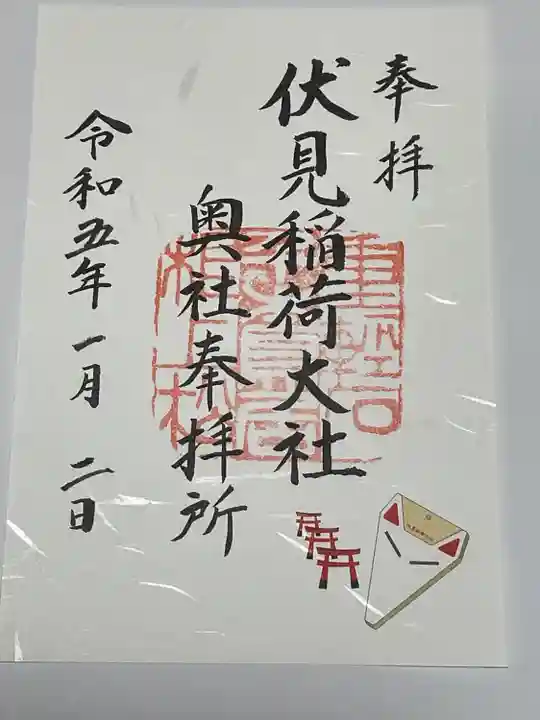 奉拝
伏見稲荷大社
奥社奉拝所
令和五年一月二日